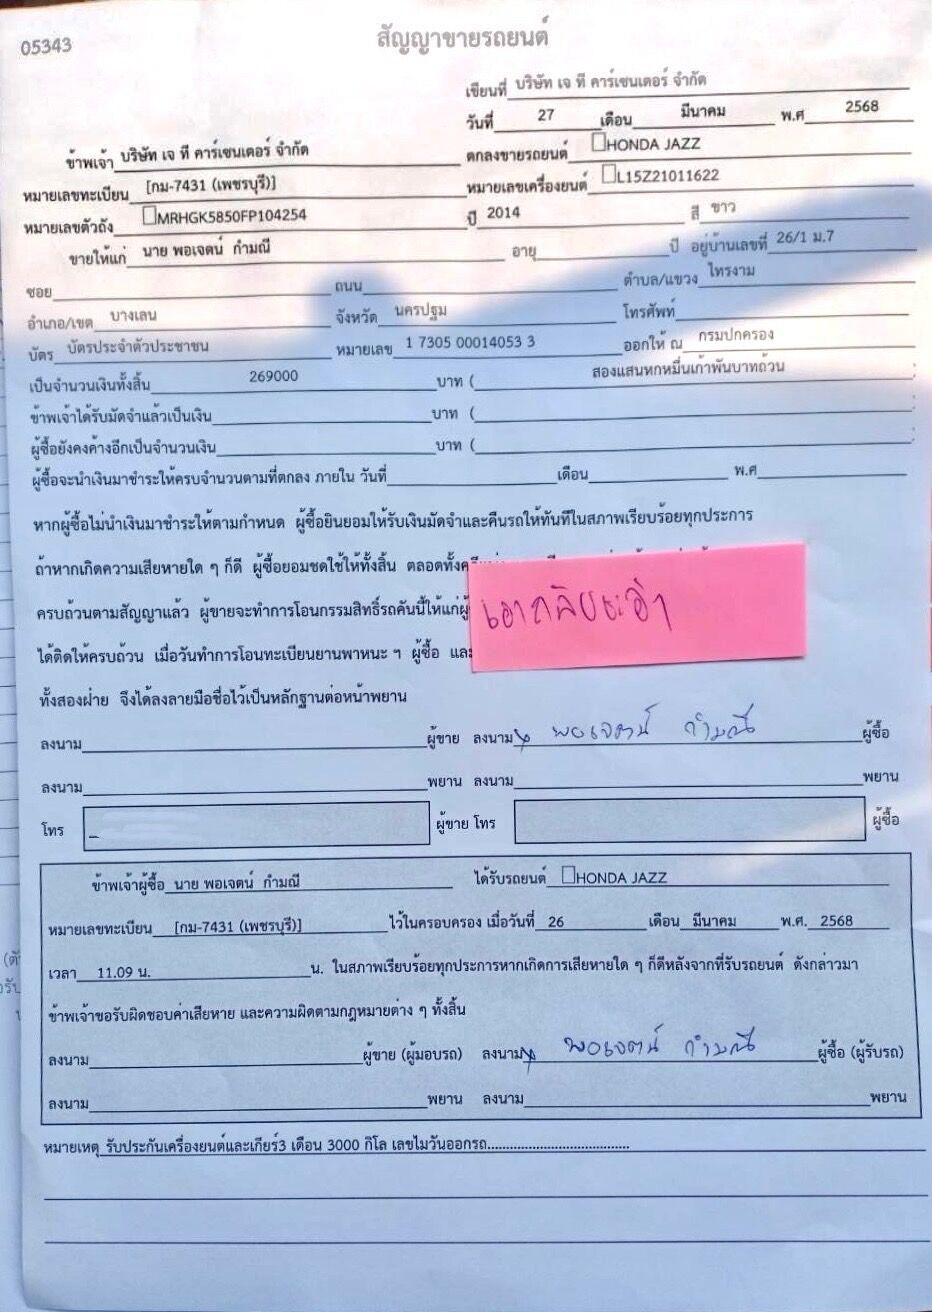 05343
สัญญาขายรถยนต์
เขียนที่ บริษัท เจ ที คาร์เซนเตอร์ จำกัด
วันที่ 27 เดือน มีนาคม พ.ศ 2568
ข้าพเจ้า บริษัท เจ ที คาร์เซนเตอร์ จำกัด ตกลงขายรถยนต์ HONDA JAZZ
หมายเลขทะเบียน [กม-7431 (เพชรบุรี)] หมายเลขเครื่องยนต์ L15Z21011622
หมายเลขตัวถัง MRHGK5850FP104254 ปี 2014 สี ขาว
ขายให้แก่ นาย พอเจตน์ กำมณี อายุ ปี อยู่บ้านเลขที่ 26/1 ม.7
ซอย ถนน ตำบล/แขวง ไทรงาม
อำเภอ/เขต บางเลน จังหวัด นครปฐม โทรศัพท์
บัตร บัตรประจำตัวประชาชน หมายเลข 1 7305 00014053 3 ออกให้ ณ กรมปกครอง
เป็นจำนวนเงินทั้งสิ้น 269000 บาท ( สองแสนหกหมื่นเก้าพันบาทถ้วน
ข้าพเจ้าได้รับมัดจำแล้วเป็นเงิน บาท (
ผู้ซื้อยังคงค้างอีกเป็นจำนวนเงิน บาท (
ผู้ซื้อจะนำเงินมาชำระให้ครบจำนวนตามที่ตกลง ภายใน วันที่ เดือน พ.ศ
หากผู้ซื้อไม่นำเงินมาชำระให้ตามกำหนด ผู้ซื้อยินยอมให้รับเงินมัดจำและคืนรถให้ทันทีในสภาพเรียบร้อยทุกประการ
ถ้าหากเกิดความเสียหายใด ๆ ก็ดี ผู้ซื้อยอมชดใช้ให้ทั้งสิ้น ตลอดทั้ง
ครบถ้วนตามสัญญาแล้ว ผู้ขายจะทำการโอนกรรมสิทธิ์รถคันนี้ให้แก่ผู้
ได้ติดให้ครบถ้วน เมื่อวันทำการโอนทะเบียนยานพาหนะ ฯ ผู้ซื้อ และ
ทั้งสองฝ่าย จึงได้ลงลายมือชื่อไว้เป็นหลักฐานต่อหน้าพยาน
ลงนาม ผู้ขาย ลงนาม พอเจตน์ กำมณี ผู้ซื้อ
ลงนาม พยาน ลงนาม พยาน
โทร ผู้ขาย โทร ผู้ซื้อ
ข้าพเจ้าผู้ซื้อ นาย พอเจตน์ กำมณี ได้รับรถยนต์ HONDA JAZZ
หมายเลขทะเบียน [กม-7431 (เพชรบุรี)] ไว้ในครอบครอง เมื่อวันที่ 26 เดือน มีนาคม พ.ศ. 2568
เวลา 11.09 น. น. ในสภาพเรียบร้อยทุกประการหากเกิดการเสียหายใด ๆ ก็ดีหลังจากที่รับรถยนต์ ดังกล่าวมา
ข้าพเจ้าขอรับผิดชอบค่าเสียหาย และความผิดตามกฎหมายต่าง ๆ ทั้งสิ้น
ลงนาม ผู้ขาย (ผู้มอบรถ) ลงนาม พอเจตน์ กำมณี ผู้ซื้อ (ผู้รับรถ)
ลงนาม พยาน ลงนาม พยาน
หมายเหตุ รับประกันเครื่องยนต์และเกียร์3 เดือน 3000 กิโล เลขไมวันออกรถ......................................